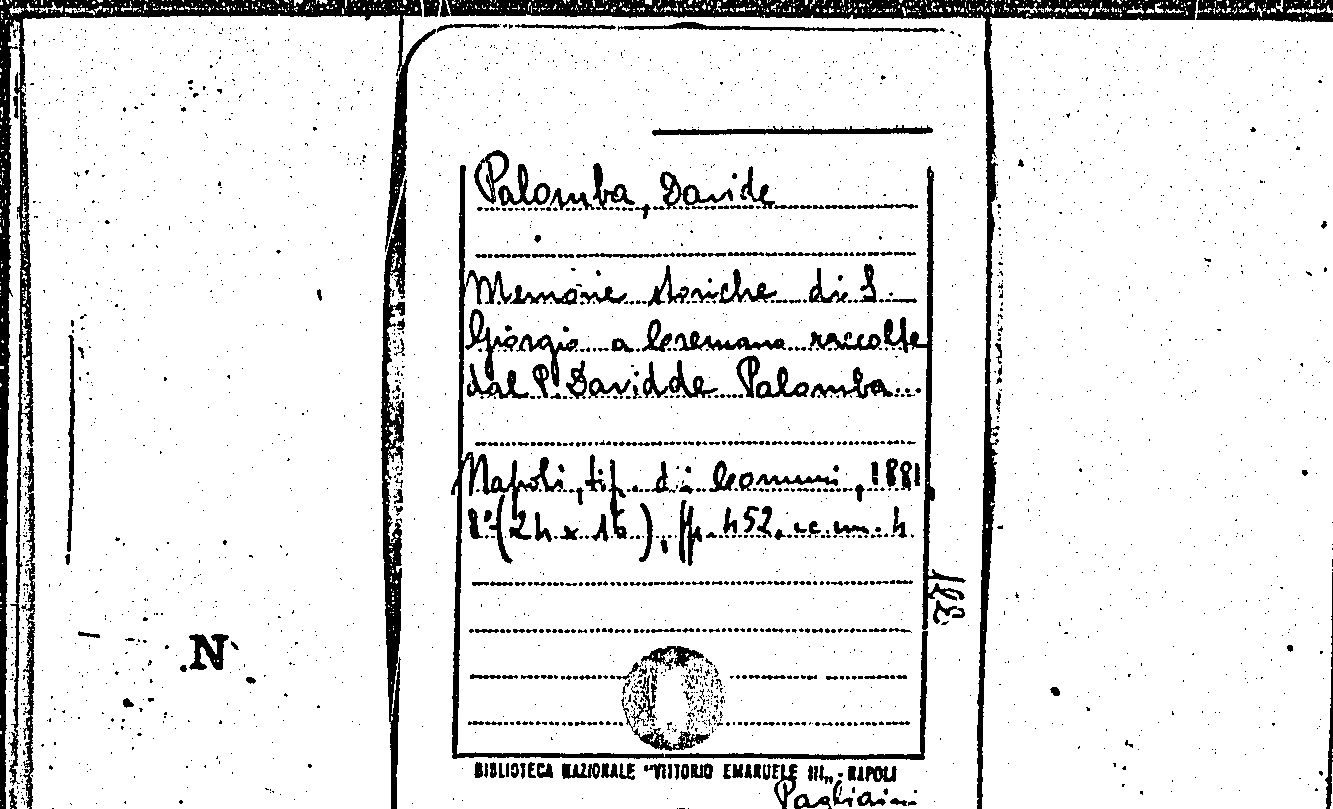 Palomba, Davide
Memorie storiche di S.
Giorgio a Cremano raccolte
dal P. Davidde Palomba...
Napoli, tip. di Comuni, 1881
8°(24 x 16), pp. 452, cc.nn. 4
188
.N
BIBLIOTECA NAZIONALE "VITTORIO EMANUELE III„ - NAPOLI
Pagliaini